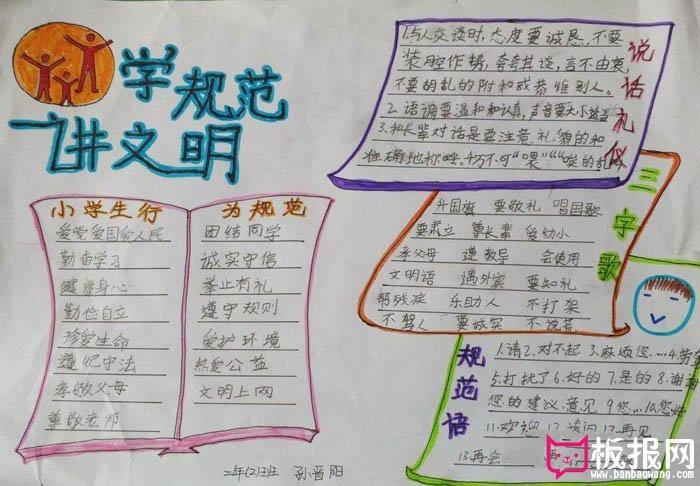 学规范
讲文明
小学生行
为规范
爱党爱国爱人民
勤奋学习
健康身心
勤俭自立
珍爱生命
遵纪守法
孝敬父母
尊敬老师
团结同学
诚实守信
举止有礼
遵守规则
爱护环境
热爱公益
文明上网
二年(2)班 孙晋阳
说话礼仪
1.与人交谈时,态度要诚恳,不要
装腔作势,夸夸其谈,言不由衷,
不要胡乱的附和或恭维别人。
2.语调要温和和认真,声音要大小适
3.和长辈对话是要注意,礼貌的和
准确地称呼。千万不可“喂”“唉”的乱
三字歌
升国旗 要敬礼 唱国歌
要肃立 尊长辈 爱幼小
孝父母 遵教导 会使用
文明语 遇外宾 要知礼
帮残疾 乐助人 不打架
不骂人 要诚实 不说谎
规范语
1.请2.对不起3.麻烦您....4.劳
5.打扰了6.好的7.是的8.谢
您的建议意见9.您...10.您好
11.欢迎 12.请问17.再见
13.再会
板报网
www.banbaowang.com